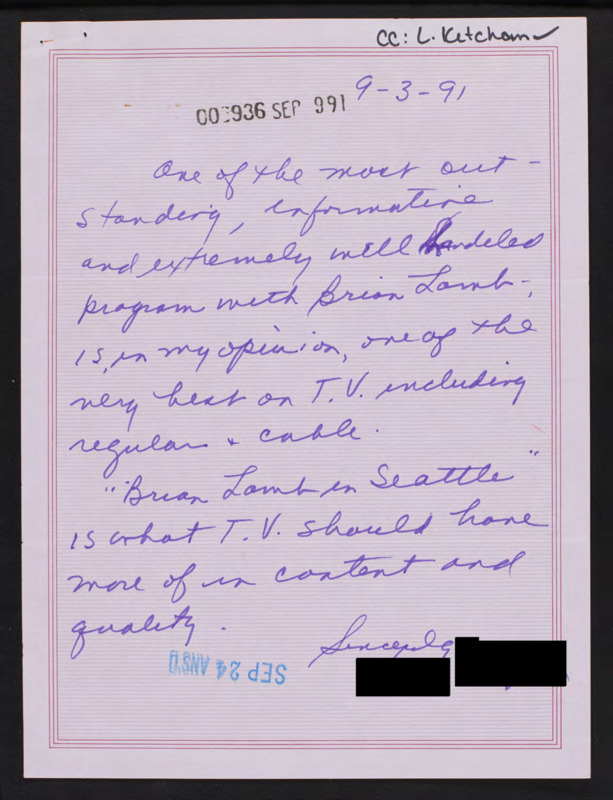 CC: L. Ketcham
9-3-91
003936 SEP 991
One of the most out-
standing, informative
and extremely well handeled
program with Brian Lamb-,
is, in my opinion, one of the
very best on T.V. including
regular & cable.
"Brian Lamb in Seattle"
is what T.V. should have
more of in content and
quality.
Sincerely
SEP 24 ANS'D